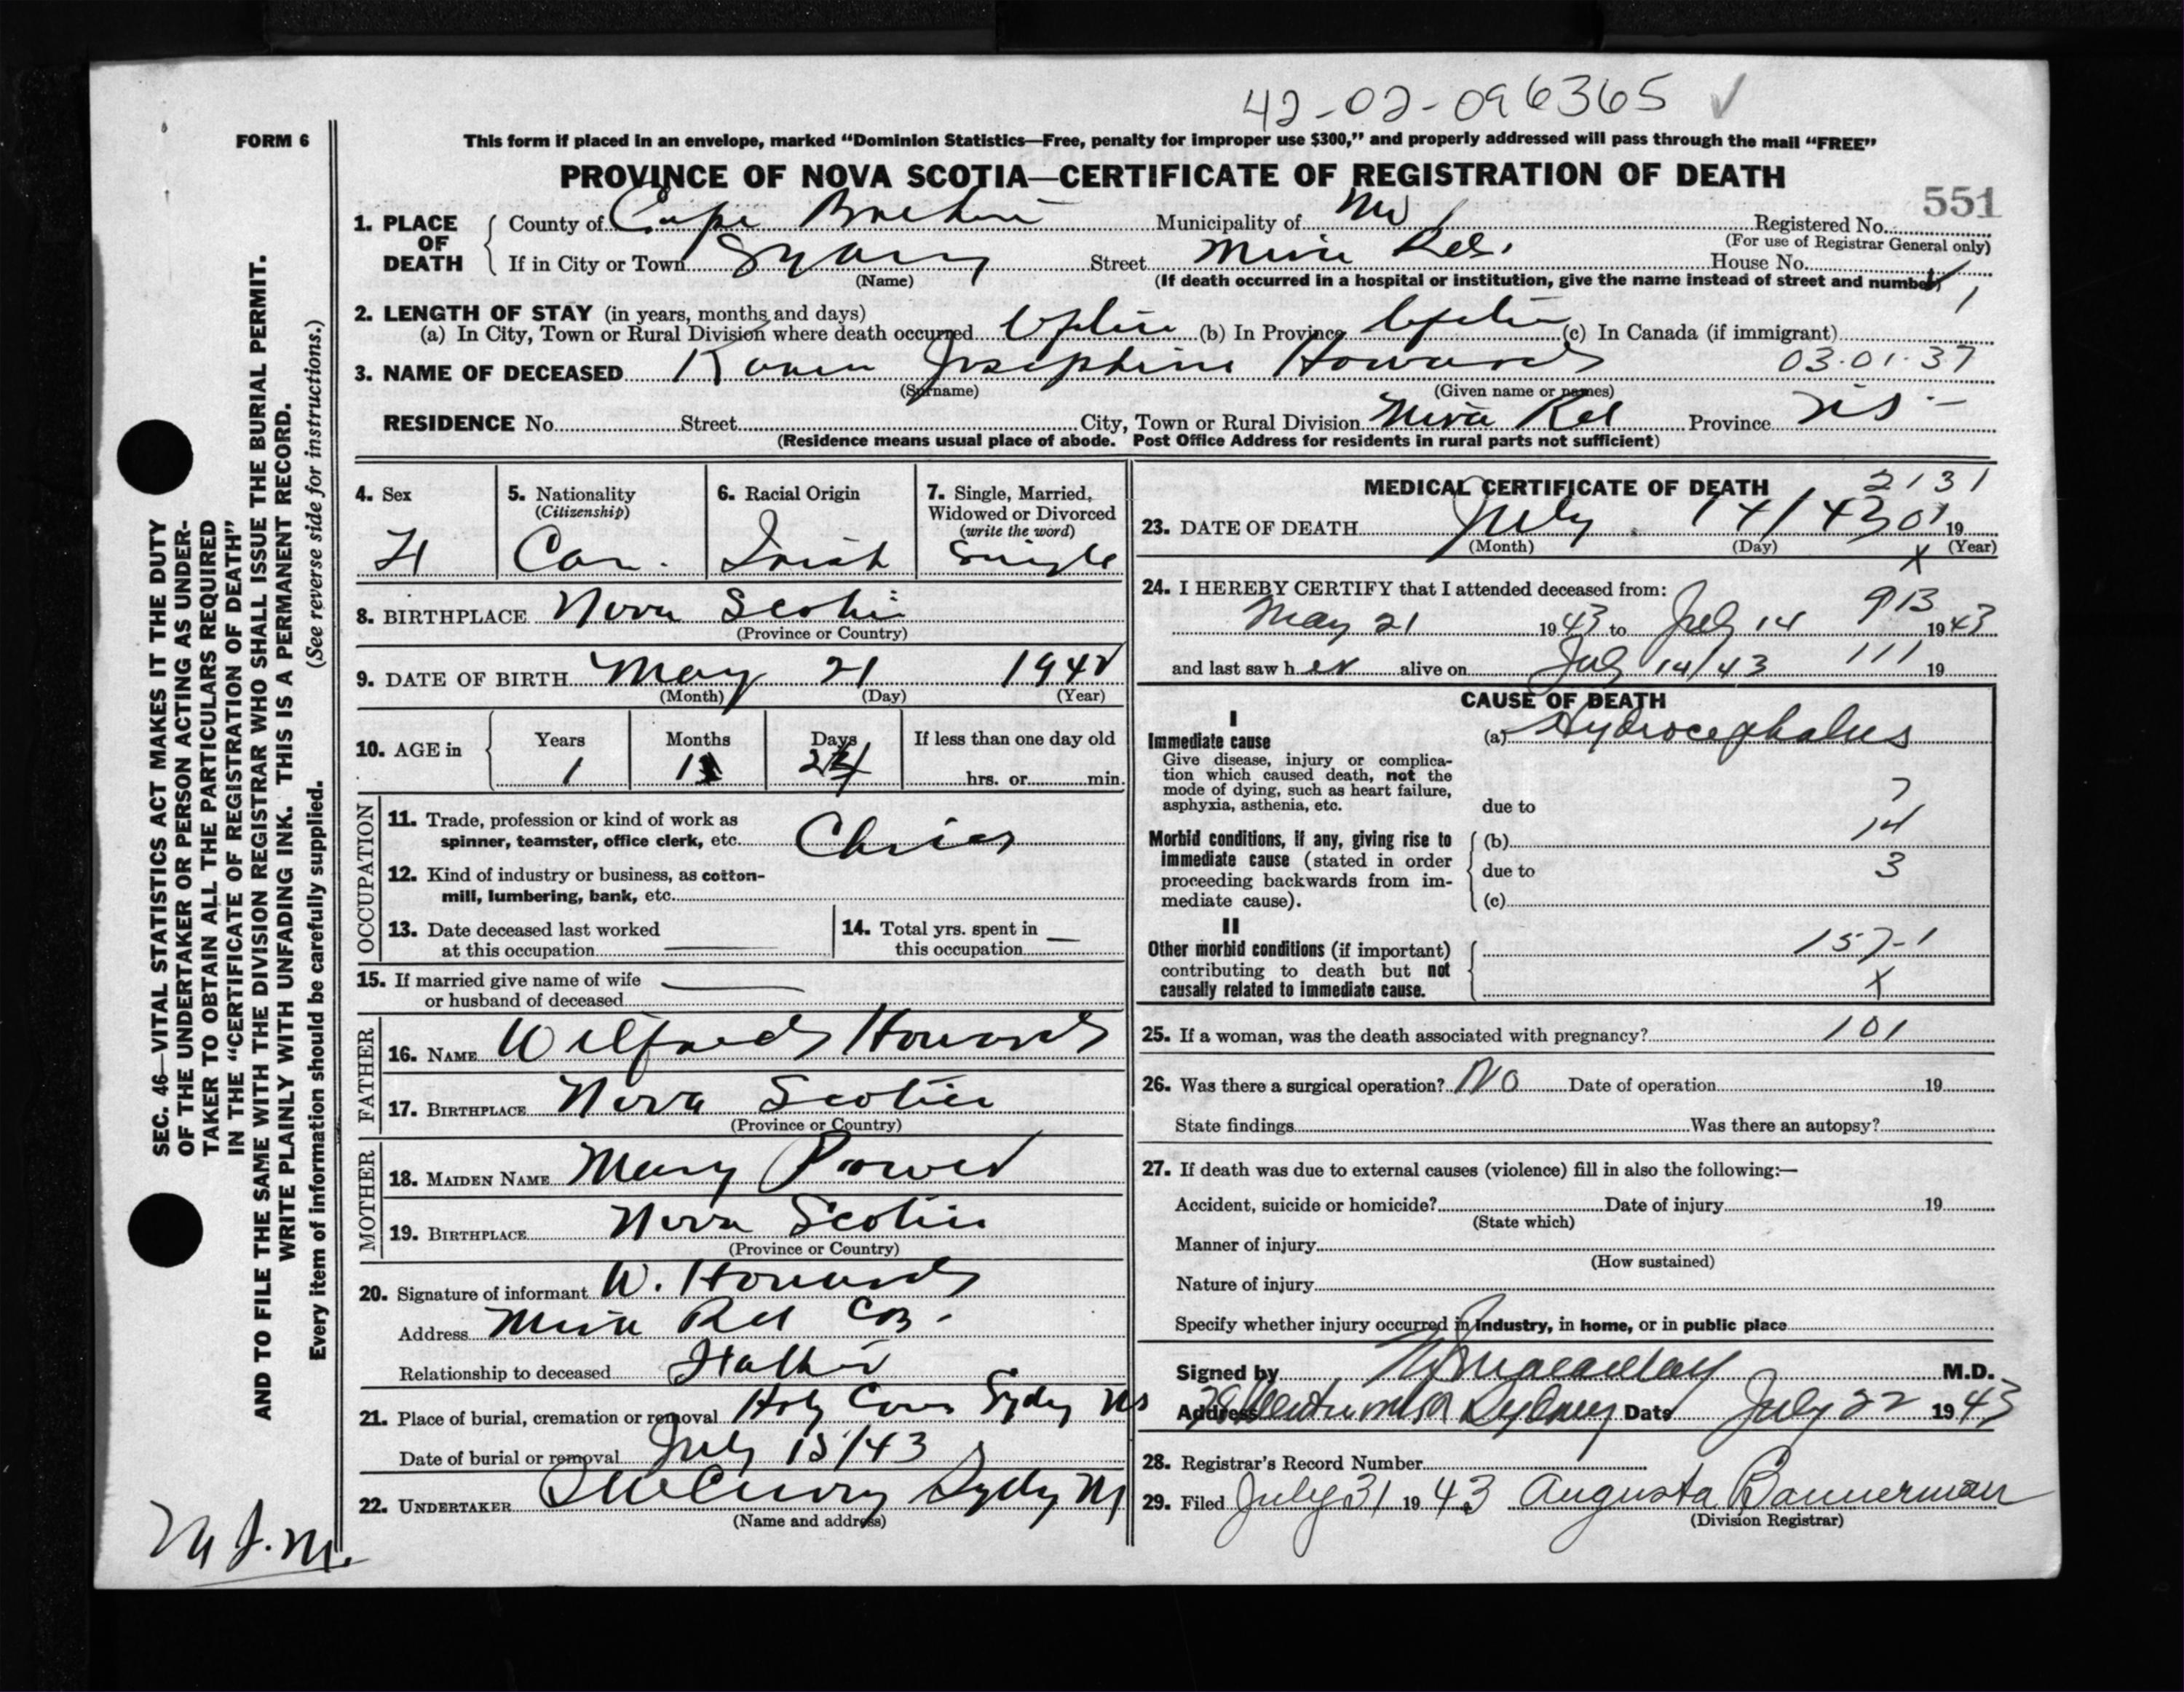 42-02-096365 ✓
FORM 6
This form if placed in an envelope, marked “Dominion Statistics—Free, penalty for improper use $300,” and properly addressed will pass through the mail “FREE”
PROVINCE OF NOVA SCOTIA—CERTIFICATE OF REGISTRATION OF DEATH
551
1. PLACE OF DEATH
County of Cape Breton Municipality of Registered No.
(For use of Registrar General only)
If in City or Town Sydney Street Mira Rd. House No.
(Name) (If death occurred in a hospital or institution, give the name instead of street and number)
2. LENGTH OF STAY (in years, months and days)
(a) In City, Town or Rural Division where death occurred Life time (b) In Province Life time (c) In Canada (if immigrant)
3. NAME OF DECEASED Karen Josephine Howard 03.01.37
(Surname) (Given name or names)
RESIDENCE No. Street City, Town or Rural Division Mira Rd Province NS
(Residence means usual place of abode. Post Office Address for residents in rural parts not sufficient)
4. Sex
F
5. Nationality
(Citizenship)
Can.
6. Racial Origin
Irish
7. Single, Married, Widowed or Divorced
(write the word)
Single
8. BIRTHPLACE Nova Scotia
(Province or Country)
9. DATE OF BIRTH May 21 194
(Month) (Day) (Year)
10. AGE in
Years Months Days If less than one day old
1 hrs. or min.
OCCUPATION
11. Trade, profession or kind of work as
spinner, teamster, office clerk, etc.
12. Kind of industry or business, as cotton-
mill, lumbering, bank, etc.
13. Date deceased last worked
at this occupation
14. Total yrs. spent in —
this occupation
15. If married give name of wife
or husband of deceased
FATHER
16. NAME Wilfred Howard
17. BIRTHPLACE Nova Scotia
(Province or Country)
MOTHER
18. MAIDEN NAME Mary Power
19. BIRTHPLACE Nova Scotia
(Province or Country)
20. Signature of informant W. Howard
Address Mira Rd CB.
Relationship to deceased Father
21. Place of burial, cremation or removal Holy Cross Sydney NS
Date of burial or removal July 15/43
22. UNDERTAKER Sydney NS
(Name and address)
MEDICAL CERTIFICATE OF DEATH
2131
23. DATE OF DEATH July 14/43 01 19
(Month) (Day) (Year)
X
24. I HEREBY CERTIFY that I attended deceased from:
913
May 21 1943 to July 14 1943
and last saw h er alive on July 14/43 111 19
CAUSE OF DEATH
I
Immediate cause
Give disease, injury or complica-
tion which caused death, not the
mode of dying, such as heart failure,
asphyxia, asthenia, etc.
(a) Hydrocephalus
7
due to
Morbid conditions, if any, giving rise to
immediate cause (stated in order
proceeding backwards from im-
mediate cause).
(b) 14
due to 3
(c)
II
Other morbid conditions (if important)
contributing to death but not
causally related to immediate cause.
157-1
X
25. If a woman, was the death associated with pregnancy? 101
26. Was there a surgical operation? No Date of operation 19
State findings Was there an autopsy?
27. If death was due to external causes (violence) fill in also the following:—
Accident, suicide or homicide? Date of injury 19
(State which)
Manner of injury
(How sustained)
Nature of injury
Specify whether injury occurred in industry, in home, or in public place
Signed by M.D.
Address Sydney Date July 22 1943
28. Registrar's Record Number
29. Filed July 31 1943 Augusta Bannerman
(Division Registrar)
SEC. 46—VITAL STATISTICS ACT MAKES IT THE DUTY
OF THE UNDERTAKER OR PERSON ACTING AS UNDER-
TAKER TO OBTAIN ALL THE PARTICULARS REQUIRED
IN THE “CERTIFICATE OF REGISTRATION OF DEATH”
AND TO FILE THE SAME WITH THE DIVISION REGISTRAR WHO SHALL ISSUE THE BURIAL PERMIT.
WRITE PLAINLY WITH UNFADING INK. THIS IS A PERMANENT RECORD.
Every item of information should be carefully supplied. (See reverse side for instructions.)
M.J.M.